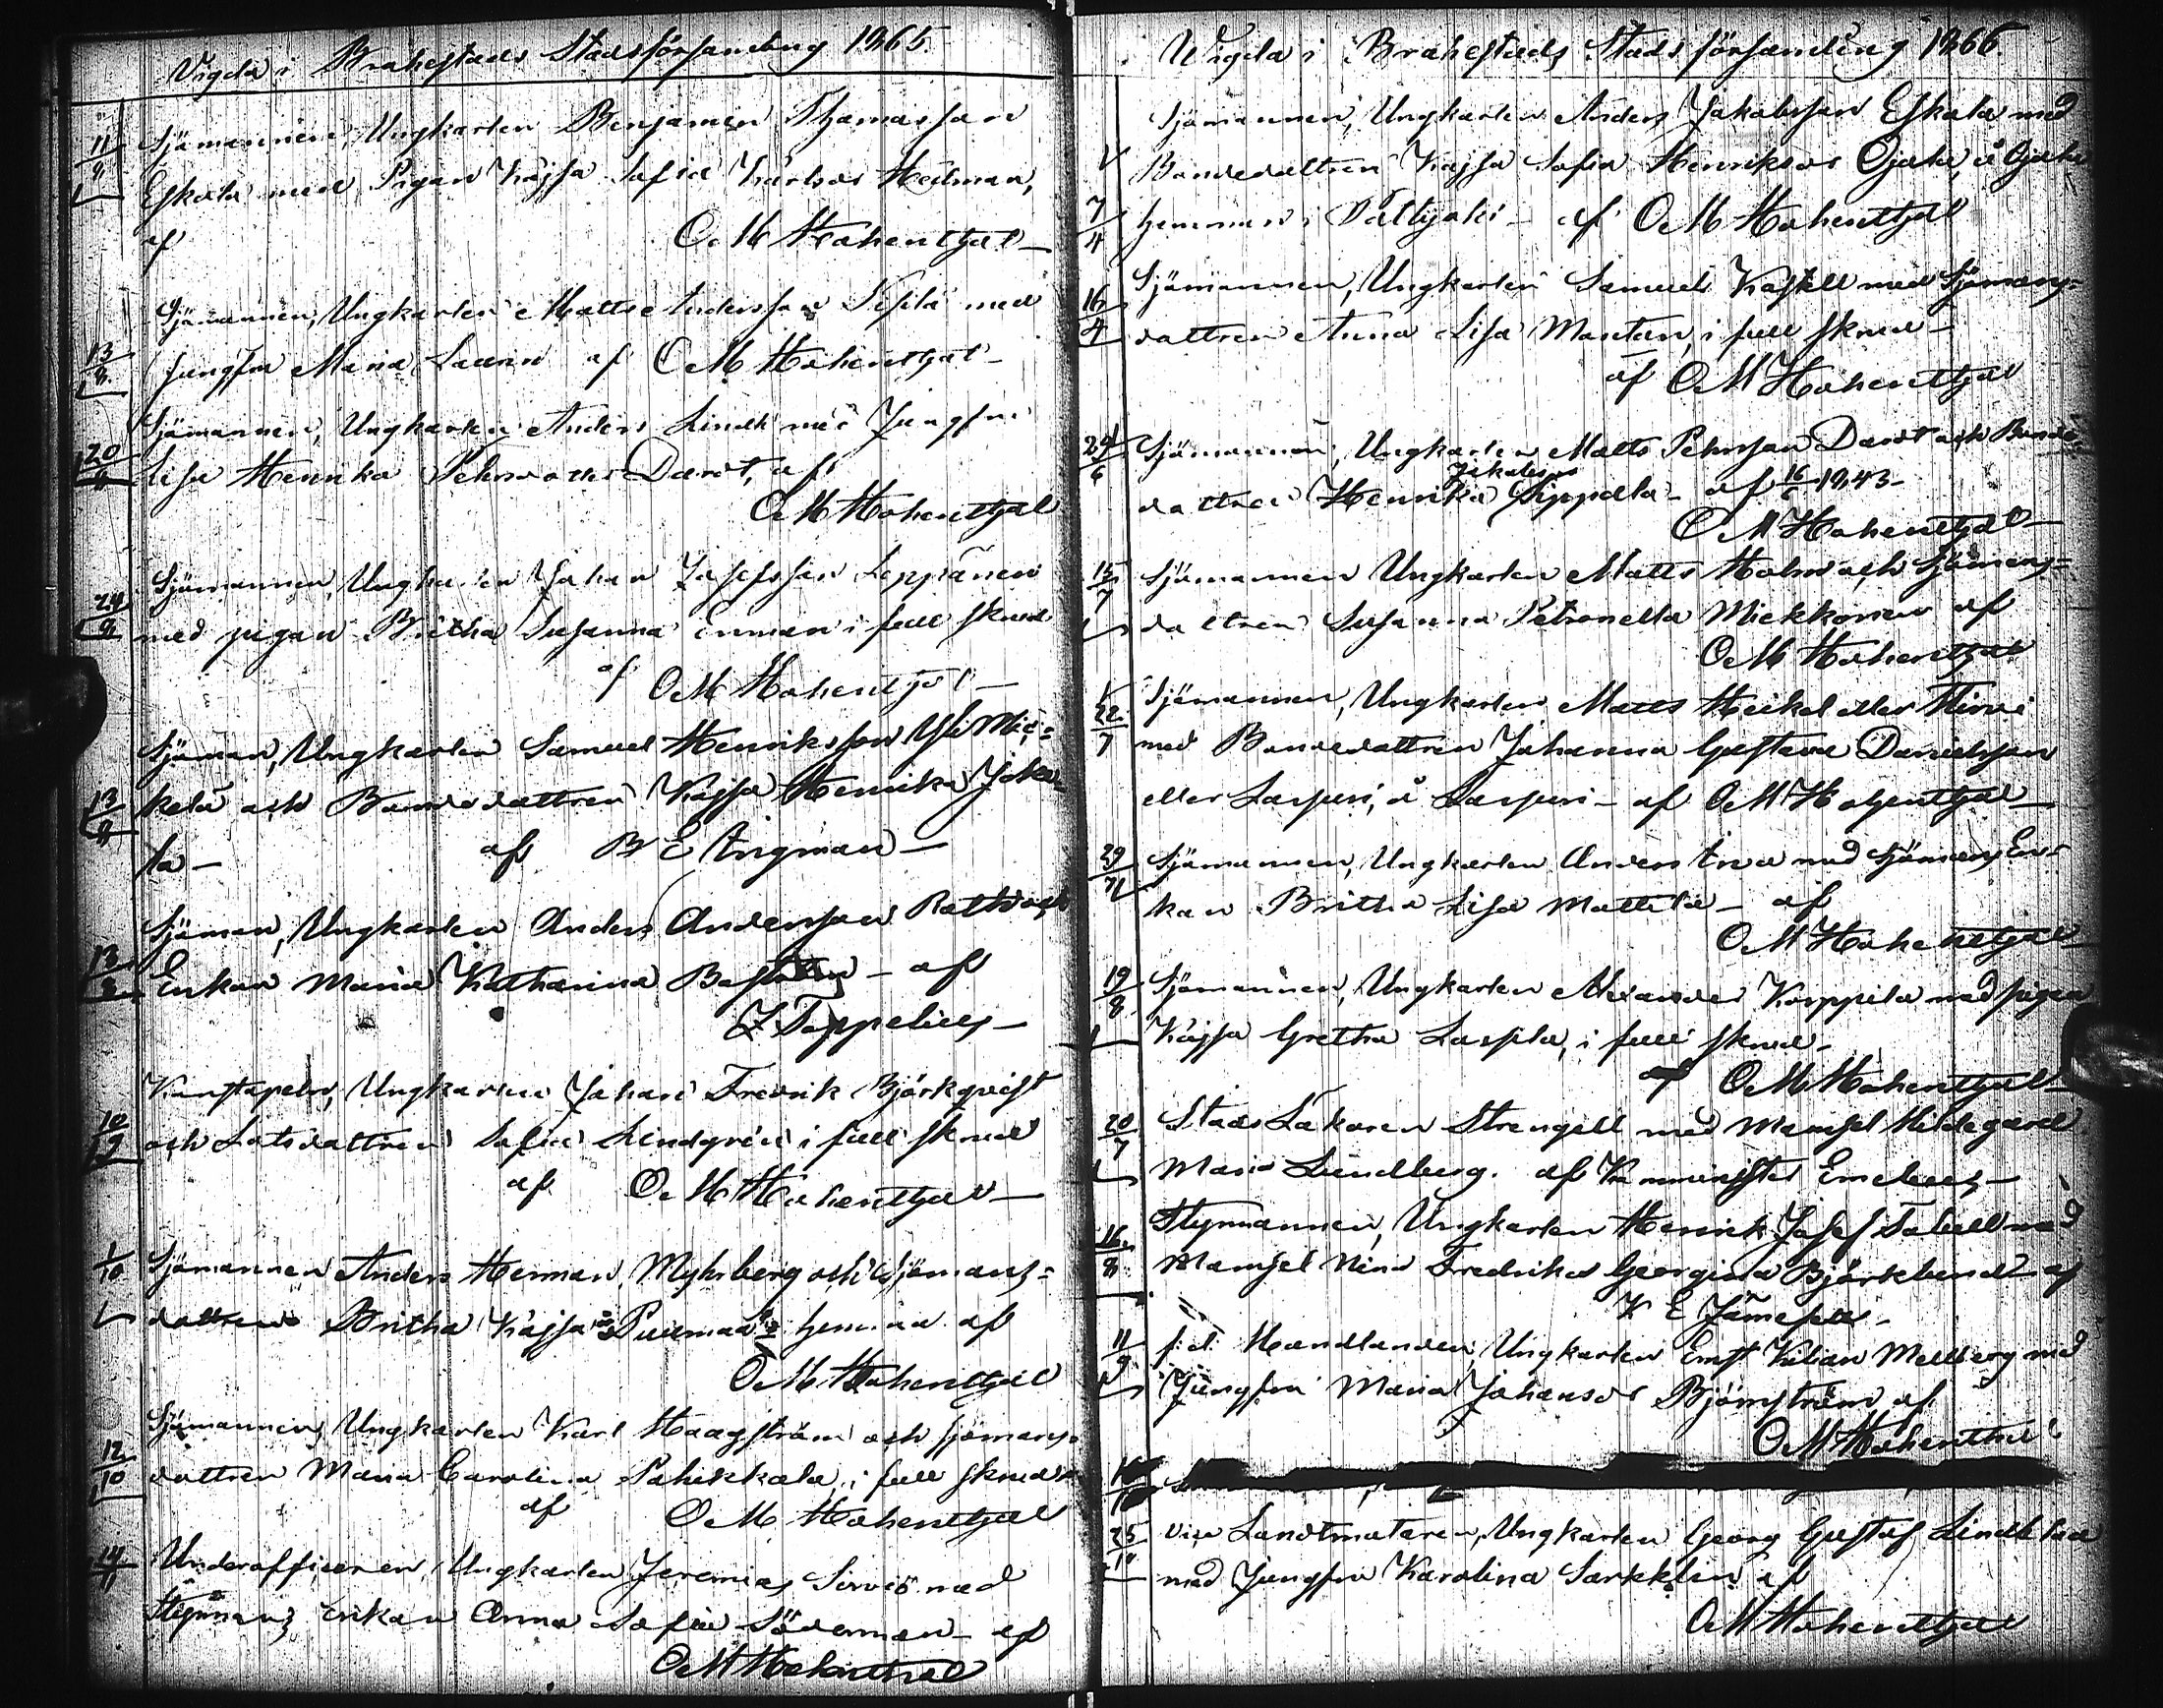 Vigda i Brahestads Stadsförsamling 1865.
11/8 Sjömannen, Ungkarlen Benjamin Thomasson
Eskola med Pigan Kajsa Sofia Karlsdr Hedman,
af O M Hohenthal
Sjömannen, Ungkarlen Matts Andersson med
13/8 Jungfru Maria af O M Hohenthal
Sjömannen, Ungkarlen Anders Lindh med Jungfru
20/8 Lisa Henrika Pehrsdotter af
O M Hohenthal
Sjömannen, Ungkarlen Johan Josefsson Leppänen
24/9 med pigan Britha Susanna Enman i full skrud
af O M Hohenthal
Sjöman, Ungkarlen Samuel Henriksson Yli Mic=
13/8 kelä och Bondedottren Kajsa Henrika Joko-
la af B E Ingman
Sjöman, Ungkarlen Anders Andersson och
13/8 Enkan Maria Katharina af
Z Toppelius
Konstapeln, Ungkarlen Johan Fredrik Björkqvist
10/9 och Lotsdottren Sofia Lindgrén i full skrud
af O M Hohenthal
1/10 Sjömannen Anders Herman Myhrberg och Sjömans=
dottren Britha Kajsa Puumala hemma af
O M Hohenthal
Sjömannen, Ungkarlen Karl Haagström och sjömans=
12/10 dottren Maria Carolina Pahikkala, i full skrud
af O M Hohenthal
14/11 Underofficeren, Ungkarlen Jeremias Serviö med
Styrmans Enkan Anna Sofia Söderman af
O M Hohenthal
Wigda i Brahestads Stadsförsamling 1866.
Sjömannen, Ungkarlen Anders Jakobsson Eskola med
Bondedottren Kajsa Sofia Henriksdr Ojala, å Ojala
7/4 hemman i Pattijoki af O M Hohenthal
Sjömannen, Ungkarlen Samuel Kastell med Sjömans=
16/4 dottren Anna Lisa Montin, i full skrud
af O M Hohenthal
24/6 Sjömannen, Ungkarlen Matts Pehrsson och Bonde
Jakobsdr
dottren Henrika Sippola af 16/6 1843
O M Hohenthal
15/7 Sjömannen Ungkarlen Matts Holm och Sjömans=
dottren Susanna Petronella Miekkonen af
O M Hohenthal
Sjömannen, Ungkarlen Matts Heikel eller Hirvi
22/7 med Bondedottren Johanna Gustava Danielsson
eller Laspuri, å Laspuri af O M Hohenthal
29/7 Sjömannen, Ungkarlen Anders med Sjömans En-
kan Britha Lisa Mattila af
O M Hohenthal
19/8 Sjömannen, Ungkarlen Alexander Korppila med pigan
Kajsa Gretha Laspila, i full skrud
af O M Hohenthal
20/7 Stads Läkaren Strengell med Mamsel Hildegard
Maria Lundberg. af Komminister Emeleus
Styrmannen, Ungkarlen Henrik Josef Tabell med
16/8 Mamsel Nina Fredrika Georgina Björklund af
K E Jämefelt
11/9 f.d. Handlanden, Ungkarlen Ernst Kilian Mellberg med
Jungfru Maria Johansdr Björnström af
O M Hohenthal
25/11 Vice Landtmätaren, Ungkarlen Georg Gustaf Lindblad
med Jungfru Karolina Sarkklin af
O M Hohenthal